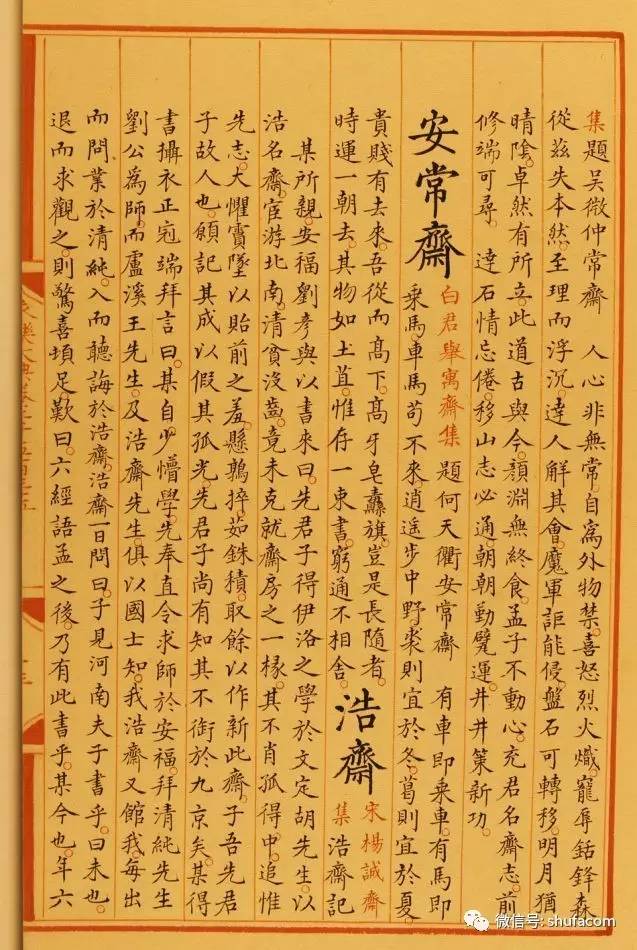 集題吳微仲常齋　人心非無常自為外物禁喜怒烈火熾寵辱銛鋒森
從茲失本然至理而浮沉達人解其會魔軍詎能侵盤石可轉移明月猶
晴陰卓然有所立此道古與今顏淵無終食孟子不動心充君名齋志前
修端可尋　達石情忘倦移山志必通朝朝勤甓運井井策新功
安常齋
白君舉寓齋集　題何天衢安常齋　有車即乘車有馬即
乘馬車馬苟不來逍遙步中野裘則宜於冬葛則宜於夏
貴賤有去來吾從而髙下髙牙皂纛旗豈是長隨者
時運一朝去其物如土苴惟存一束書窮通不相舍
浩齋
宋楊誠齋
集　浩齋記
某所親安福劉彥與以書來曰先君子得伊洛之學於文定胡先生以
浩名齋宦游北南清貧沒齒竟未克就齋房之一椽其不肖孤得中追惟
先志大懼霣墜以貽前之羞懸鶉捽茹銖積取餘以作新此齋子吾先君
子故人也願記其成以假其孤光先君子尚有知其不銜於九京矣某得
書攝衣正冠端拜言曰某自少懵學先奉直令求師於安福拜清純先生
劉公爲師而盧溪王先生及浩齋先生俱以國士知我浩齋又館我每出
而問業於清純入而聽誨於浩齋浩齋一日問曰子見河南夫子書乎曰未也
退而求觀之則驚喜頓足歎曰六經語孟之後乃有此書乎某今也年六
微信号: shufacom